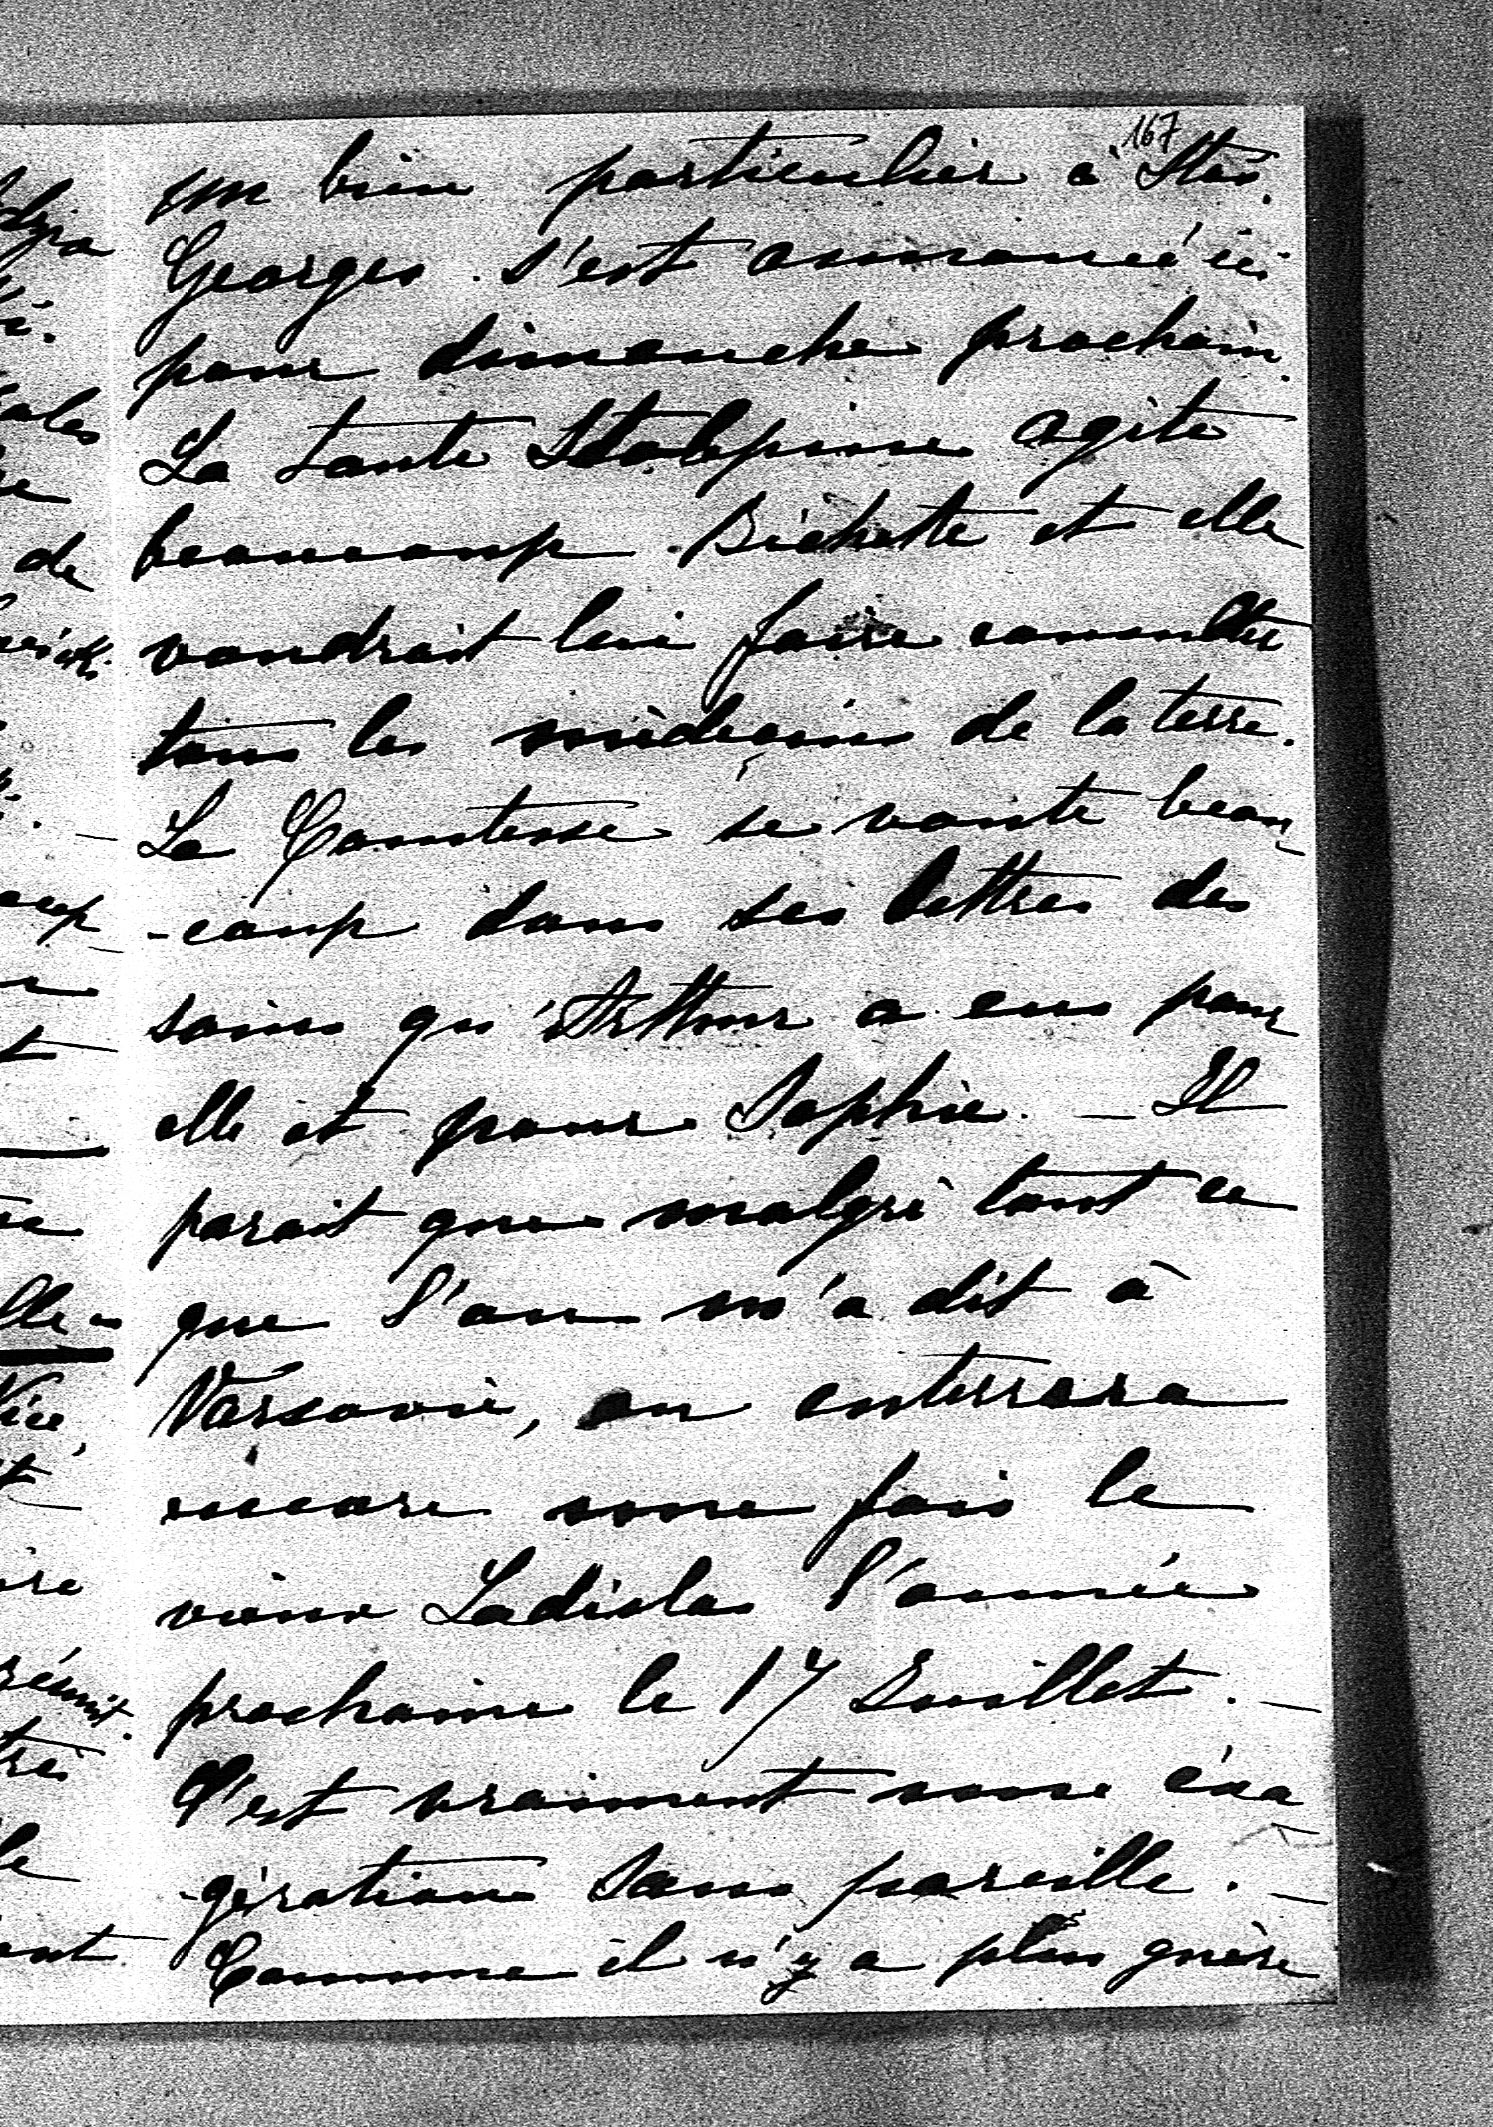 167
un bien particulier à Stas.
Georges s'est annoncé ici
pour dimanche prochain.
La tante Stolepine agite
beaucoup Bichette et elle
voudrait lui faire consulter
tous les médecins de la terre.
La Comtesse se vante beau
-coup dans ses lettres des
soins qu'Arthur a eus pour
elle et pour Sophie. — Il
parait que malgré tout ce
que l'on m'a dit à
Varsovie, on enterrera
encore une fois le
vieux Ladislas l'année
prochaine le 17 Juillet. —
C'est vraiment une éxa
-gération sans pareille. —
Comme il n'y a plus guère